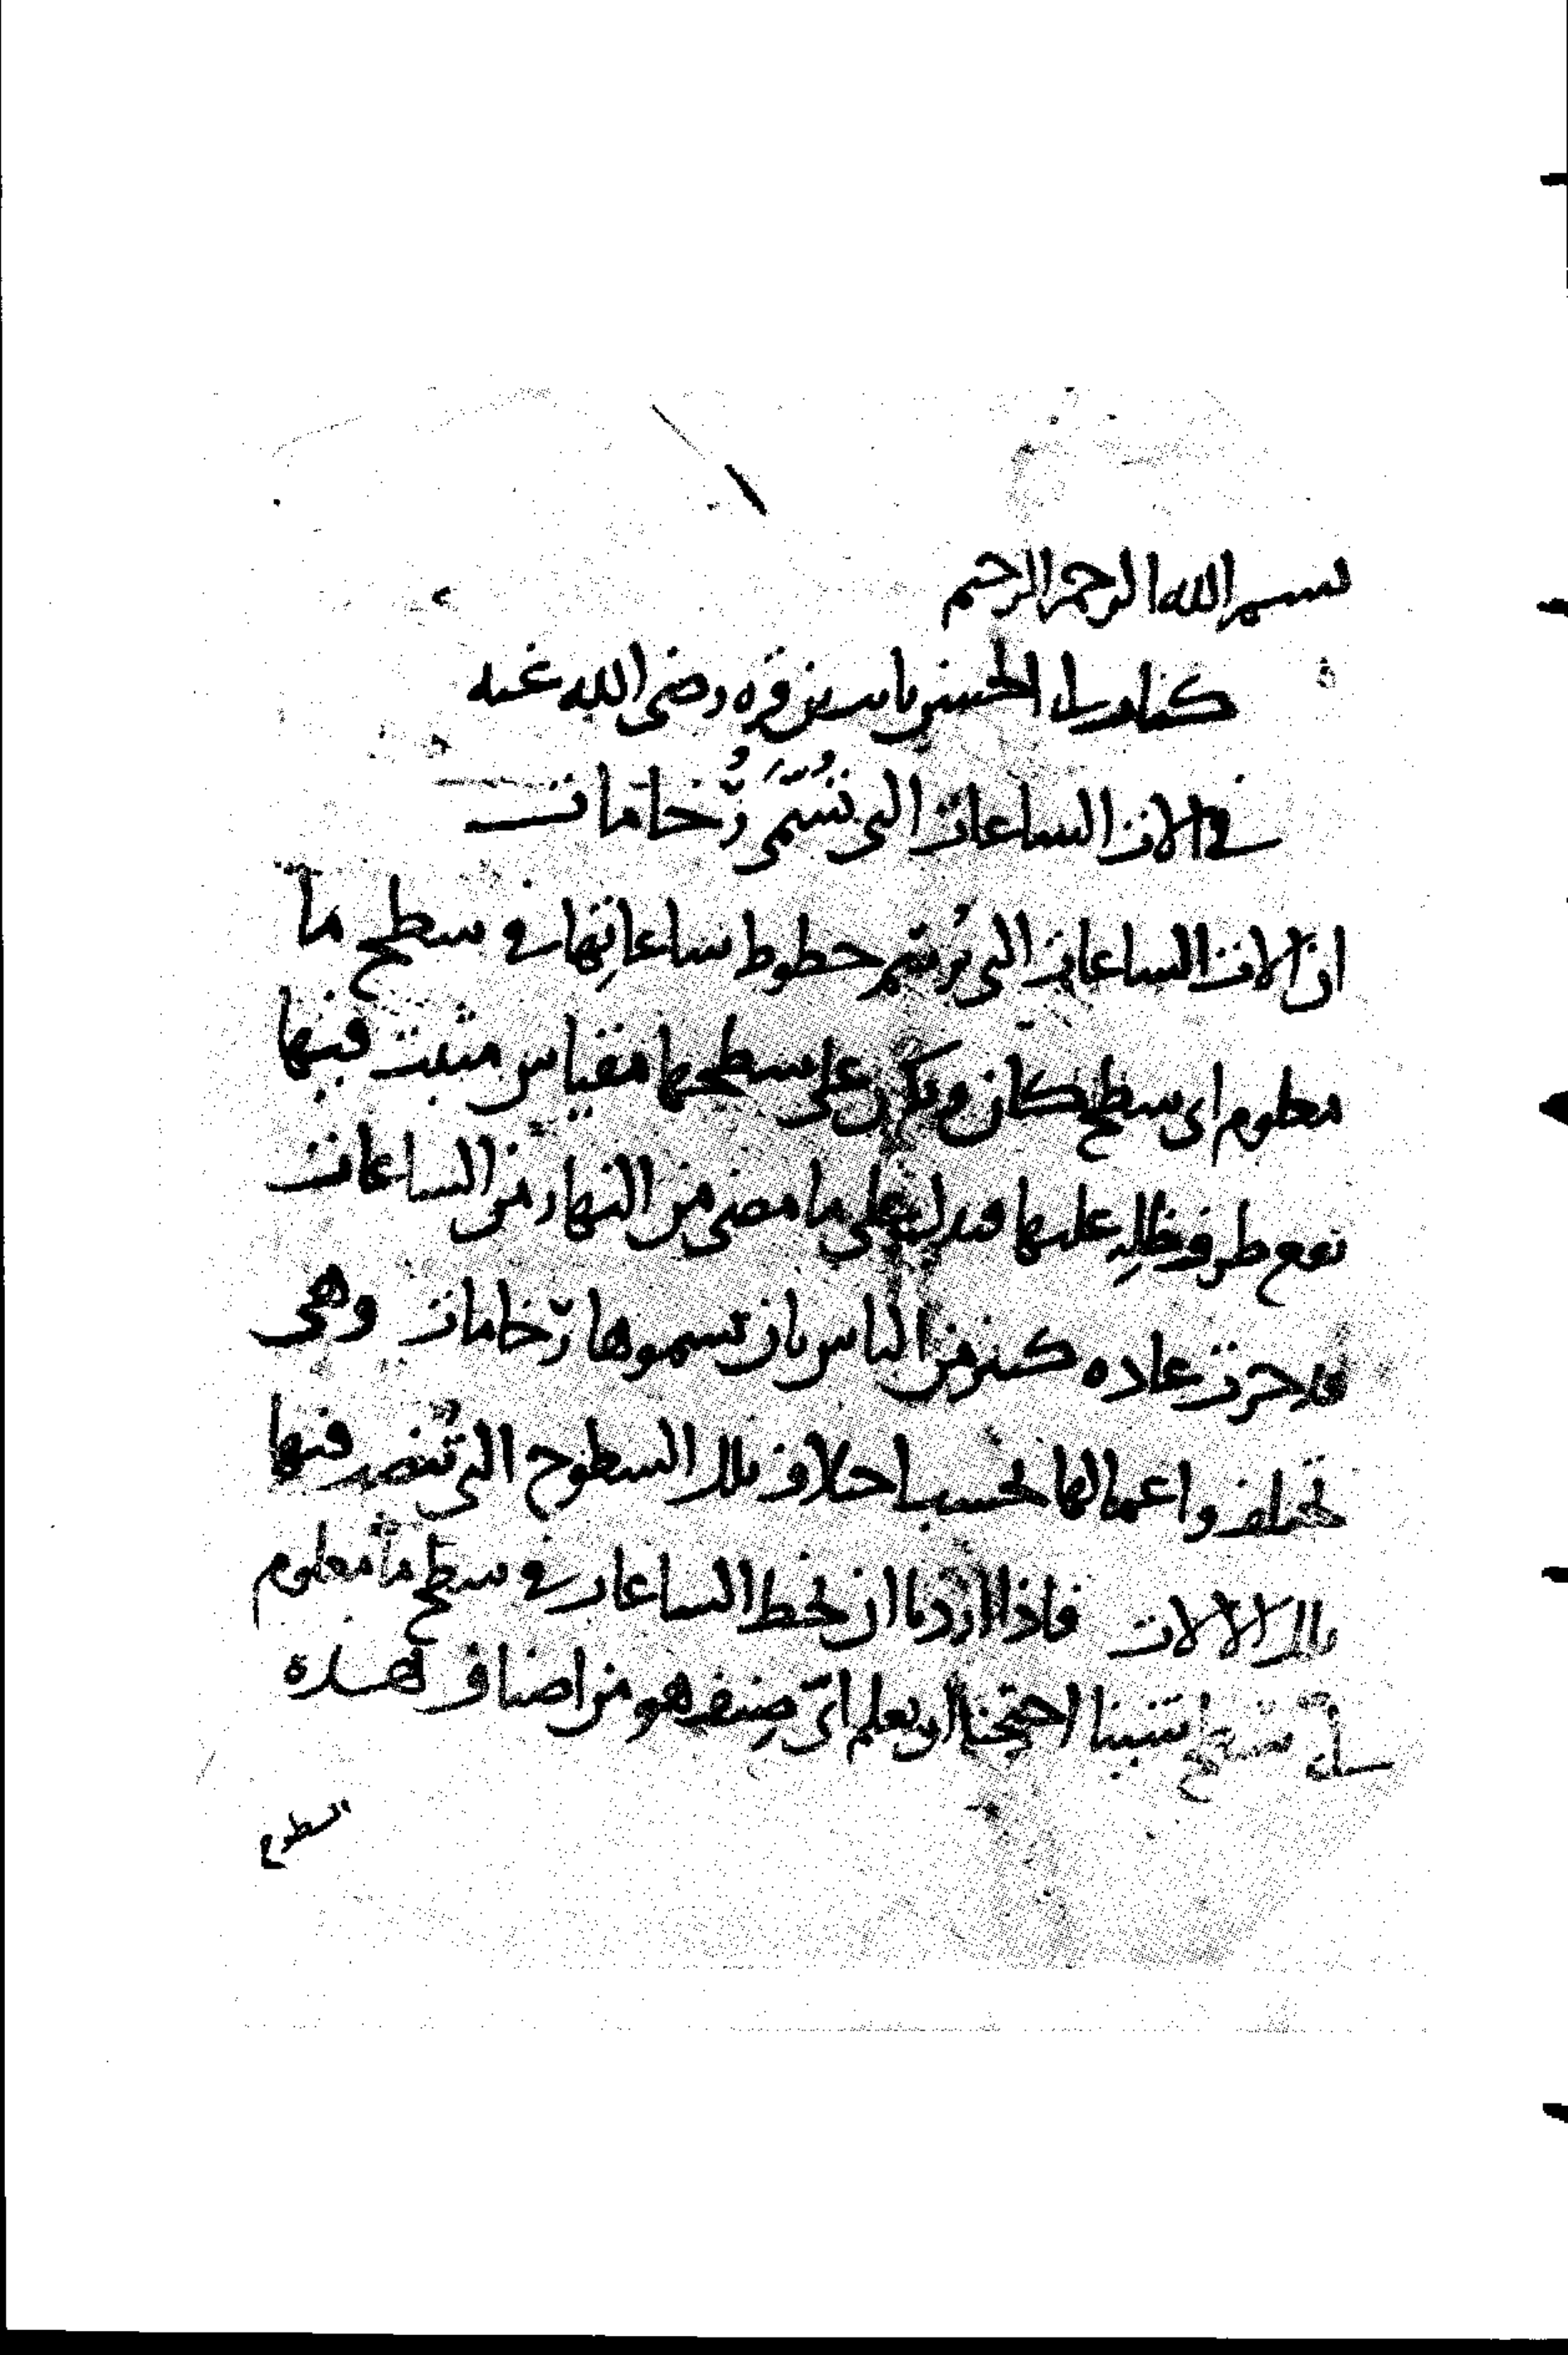 بسم الله الرحمن الرحيم
كتاب ابى الحسن ثابت بن قره رضى الله عنه
فى الات الساعات التى تُسَمَّى رُخامات
ان الات الساعات التى تُرسم خطوط ساعاتِها فى سطح ما
معلوم اى سطح كان ويكون على سطحها مقياس مثبت فيها
يقع طرف ظلِه عليها فيدل على ما مضى من النهار من الساعات
قد جرت عاده كثير من الناس بان يسموها رخامات وهى
تختلف واعمالها بحسب اختلاف تلك السطوح التى تُنصب فيها
تلك الالات فاذا اردنا ان نخط الساعات فى سطح ما معلوم
اى سطح شينا احتجنا ان نعلم اىّ صِنف هو من اصناف هذه
السطوح